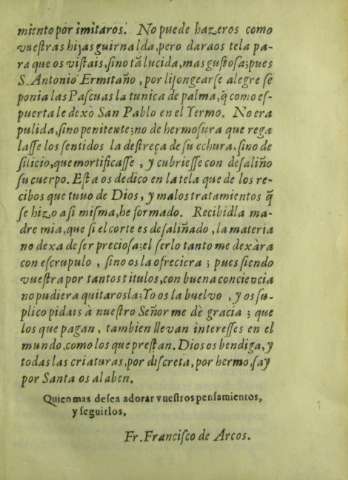 miento por imitaros. No puede hazeros como
vuestras hijas guirnalda, pero daraos tela pa-
ra que os vistais, sino tā lucida, mas gustosa; pues
S. Antonio Ermitaño, por lisongearse alegre se
ponia las Pascuas la tunica de palma, q̄ como es-
puerta le dexò San Pablo en el Yermo. No era
pulida, sino penitente; no de hermosura que rega
lasse los sentidos la destreça de su echura, sino de
silicio, que mortificasse, y cubriesse con desaliño
su cuerpo. Esta os dedico en la tela que de los re-
cibos que tuuo de Dios, y malos tratamientos q̄
se hizo a si misma, he formado. Recibidla ma-
dre mia, que si el corte es desaliñado, la materia
no dexa de ser preciosa: el serlo tanto me dexàra
con escrupulo, sino os la ofreciera; pues siendo
vuestra por tantos titulos, con buena conciencia
no pudiera quitarosla: Yo os la buelvo, y os su-
plico pidais à nuestro Señor me dè gracia; que
los que pagan, tambien llevan interesses en el
mundo, como los que prestan. Dios os bendiga, y
todas las criaturas, por discreta, por hermosa, y
por Santa os alaben.
Quien mas desea adorar vuestros pensamientos,
y seguirlos,
Fr. Francisco de Arcos.